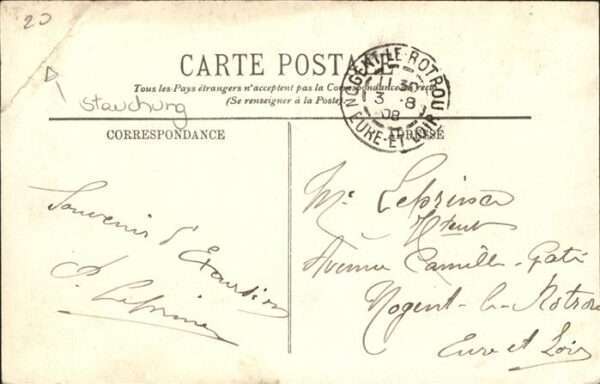 20
CARTE POSTALE
Tous les Pays étrangers n'acceptent pas la Correspondance au recto
(Se renseigner à la Poste)
Stauchung
NOGENT-LE-ROTROU
11 35
3 - 8
08
EURE-ET-LOIR
CORRESPONDANCE
ADRESSE
Souvenir d'Excursion
Leprince
Mr Leprince
Avenue Camille-Gaté
Nogent-le-Rotrou
Eure et Loir